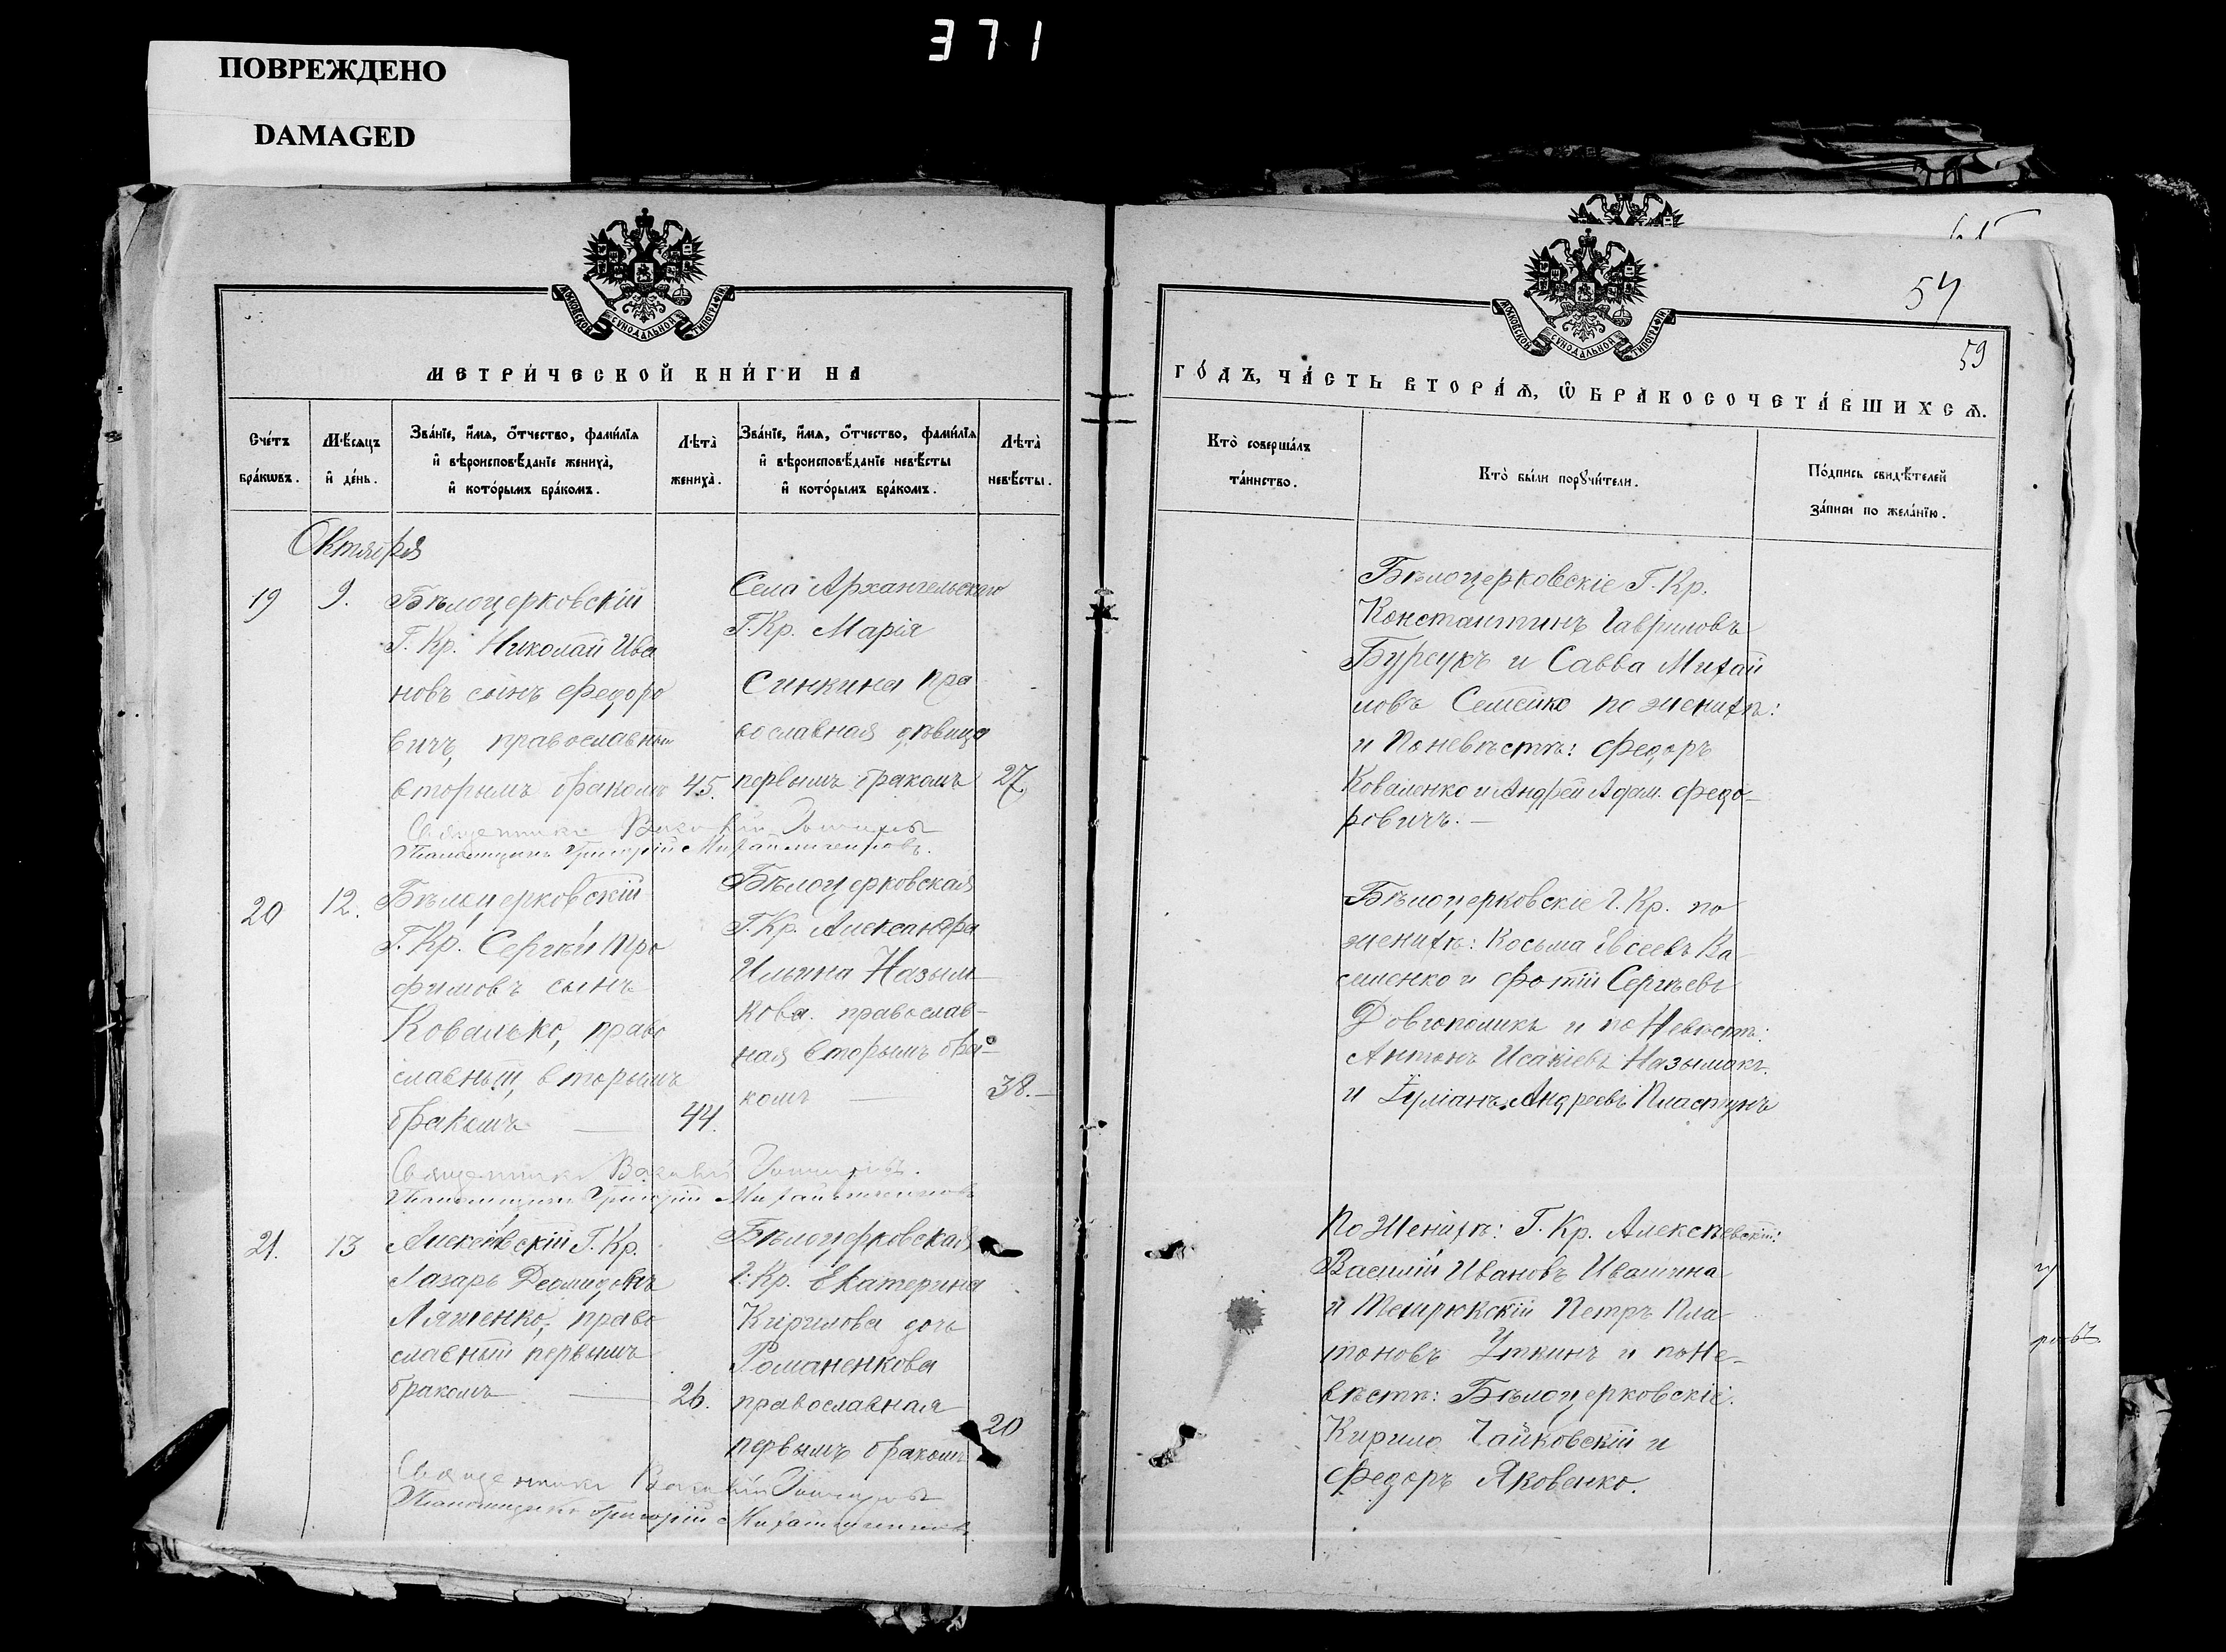 371
ПОВРЕЖДЕНО
DAMAGED
МОСКОВСКОЙ СУНОДАЛЬНОЙ ТИПОГРАФІИ
МЕТРИ́ЧЕСКОЙ КНИ́ГИ НА
Сче́тъ бра́кѡвъ.
Мѣ́сяцъ и҆ де́нь.
Зва́нїе, и҆́мѧ, ѻ҆́тчество, фами́лїѧ
и҆ вѣроисповѣ́данїе жениха̀,
и҆ кото́рымъ бра́комъ.
Лѣта̀ жениха̀.
Зва́нїе, и҆́мѧ, ѻ҆́тчество, фами́лїѧ
и҆ вѣроисповѣ́данїе невѣ́сты
и҆ кото́рымъ бра́комъ.
Лѣта̀ невѣ́сты.
Октября
19
9.
Бѣлоцерковскій
Г. Кр. Николай Ива
новъ сынъ Федоро
вичъ, православный
вторымъ бракомъ
45.
Села Архангельскаго
Г. Кр. Марія
Синкина пра
вославная дѣвица
первымъ бракомъ
27.
Священникъ
Псаломщикъ Григорій
20
12.
Бѣлоцерковскій
Г. Кр. Сергѣй Тро
фимовъ сынъ
Ковалько, право
славный, вторымъ
бракомъ —
44.
Бѣлоцерковская
Г. Кр. Александра
Ильина Назым
кова. православ-
ная вторымъ бра-
комъ —
38.—
Священникъ
Псаломщикъ Григорій
21.
13
Алексѣевскій Г. Кр.
Лазарь Деомидовъ
Ляшенко, право
славный первымъ
бракомъ —
26.
Бѣлоцерковская
Г. Кр. Екатерина
Кирилова дочь
Романенкова
православная
первымъ бракомъ
20
Священникъ
Псаломщикъ Григорій
МОСКОВСКОЙ СУНОДАЛЬНОЙ ТИПОГРАФІИ
57
59
ГО́ДЪ, ЧА́СТЬ ВТОРА́Ѧ, Ѽ БРАКОСОЧЕТА́ВШИХСѦ.
Кто̀ соверша́лъ
та́инство.
Кто̀ бы́ли порꙋчи́тели.
По́дпись свидѣ́телей
за́писи по жела́нїю.
Бѣлоцерковскіе Г. Кр.
Константинъ Гавриловъ
Бурсукъ и Савва Михай
ловъ Семейко по женихѣ:
и По невѣстѣ: Федоръ
Коваленко и Андрей Адам. Федо-
ровичъ. —
Бѣлоцерковскіе Г. Кр. по
женихѣ: Косьма Евсеевъ Ва
силенко и Фотій Сергѣевъ
Довгополикъ и по Невѣстѣ:
Антонъ Исакіевъ Назымакъ.
и Іуліанъ Андреевъ Пластунъ
По Женихѣ: Г. Кр. Алексѣевскій:
Василій Ивановъ Ивашина
и Темрюкскій Петръ Пла
тоновъ Уткинъ и по Не-
вѣстѣ: Бѣлоцерковскіе.
Кирило Чайковскій и
Федоръ Яковенко.